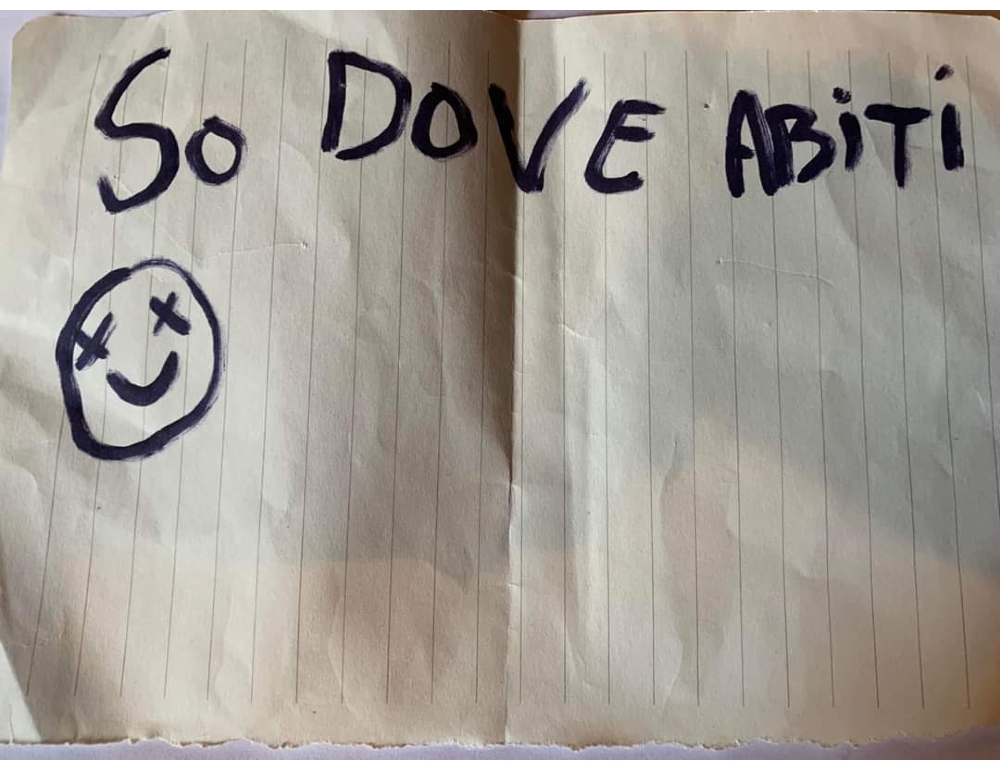 So DOVE ABiTi